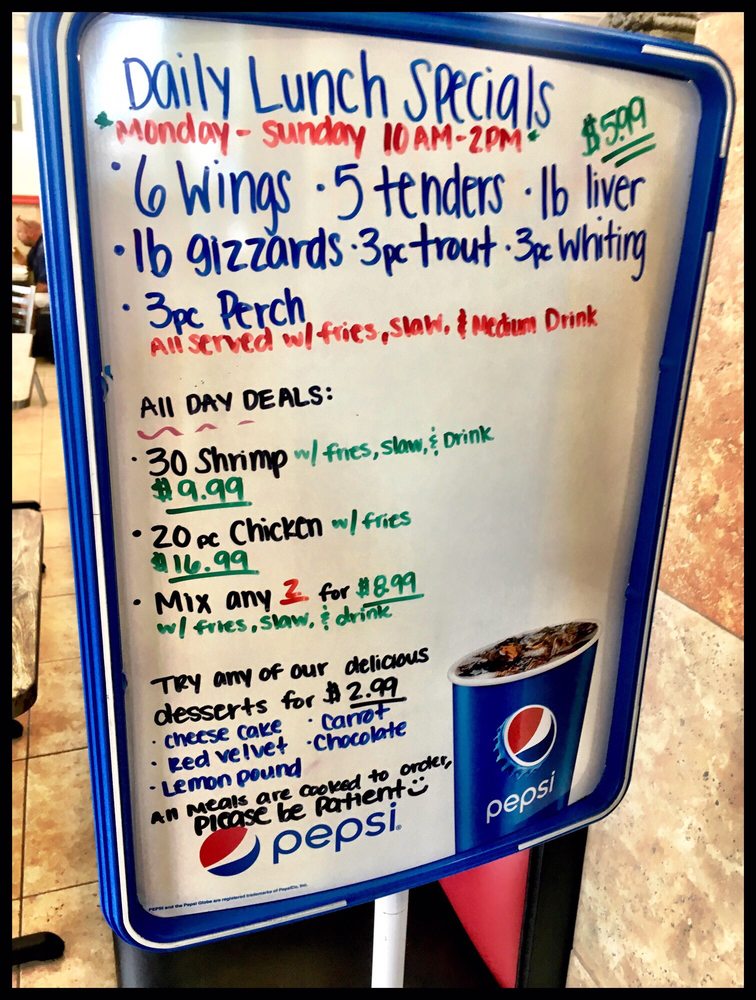 Daily Lunch Specials
*Monday - Sunday 10AM-2PM* $5.99
· 6 Wings · 5 tenders · 1b liver
· 1b gizzards · 3pc trout · 3pc Whiting
· 3pc Perch
All served w/ fries, slaw, & Medium Drink
All DAY DEALS:
· 30 Shrimp w/ fries, slaw, & Drink
$9.99
· 20 pc Chicken w/ fries
$16.99
· Mix any 2 for $8.99
w/ fries, slaw, & drink
Try any of our delicious
desserts for $2.99
· cheese cake · Carrot
· Red velvet · Chocolate
· Lemon pound
All Meals are cooked to order,
Please be Patient
pepsi
pepsi
PEPSI and the Pepsi Globe are registered trademarks of PepsiCo, Inc.